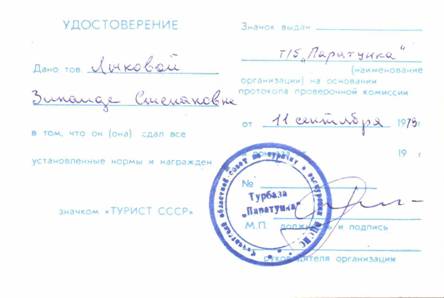 УДОСТОВЕРЕНИЕ
Дано тов. Лыковой
Зинаиде Степановне
в том, что он (она) сдал все
установленные нормы и награжден
значком «ТУРИСТ СССР»
Значок выдан
т/б „Паратунка“
(наименование
организации) на основании
протокола проверочной комиссии
от 11 сентября 1973г.
19 г.
№
Турбаза
„Паратунка“
М.П. должность и подпись
руководителя организации